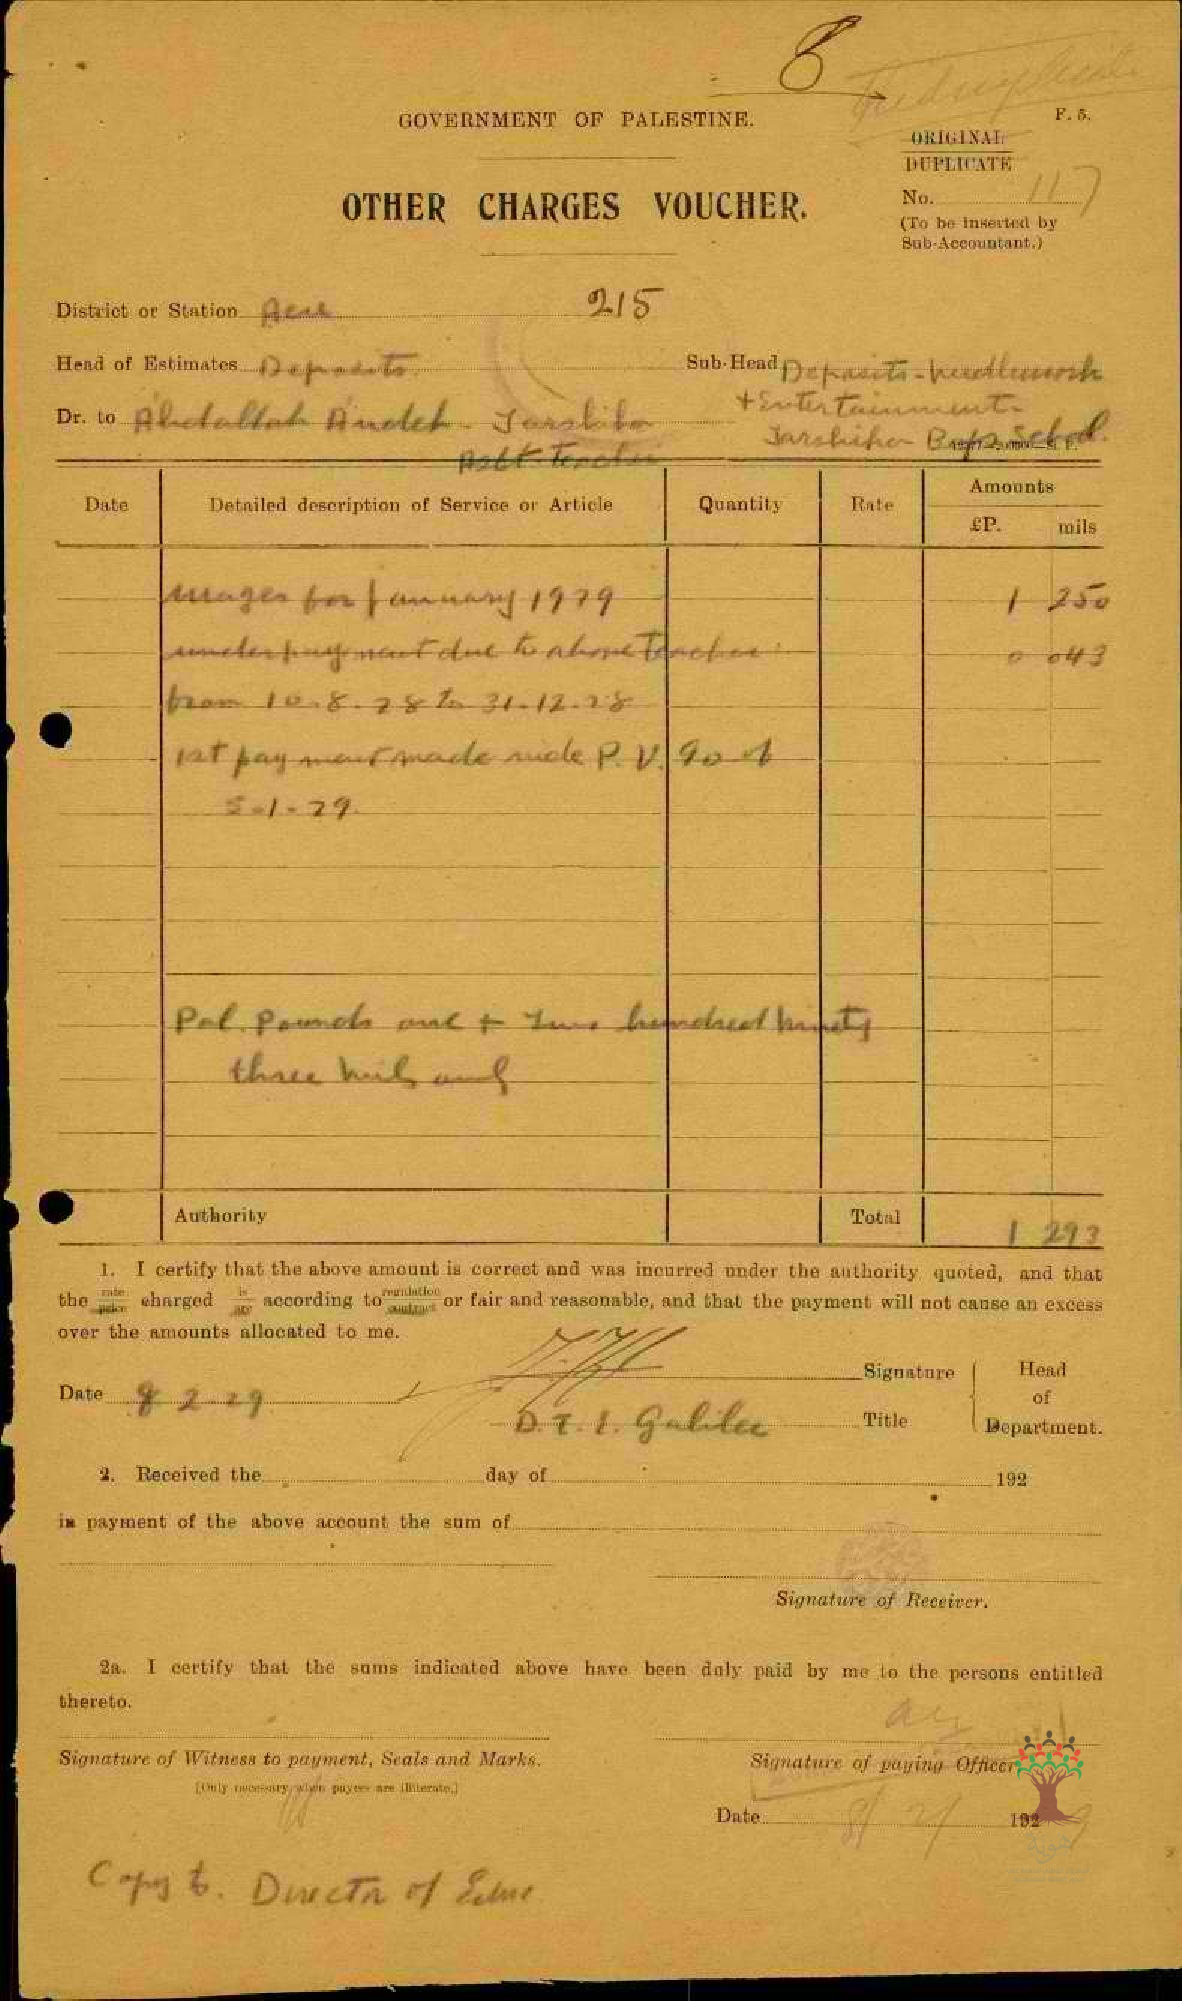 8
GOVERNMENT OF PALESTINE.
F. 5.
ORIGINAL
DUPLICATE
OTHER CHARGES VOUCHER.
No. 117
(To be inserted by
Sub-Accountant.)
District or Station Acre 215
Head of Estimates Deposits. Sub-Head Deposits - Needlework
+ Entertainment -
Dr. to Abdallah Andeh - Tarshiha Tarshiha Boys School.
Asst. Teacher
Date Detailed description of Service or Article Quantity Rate Amounts
£P. mils
Wages for January 1929 1 250
underpayment due to above Teacher 0 043
from 10.8.28 to 31.12.28
1st payment made vide P.V. 90 of
5-1-29.
Pal. Pounds one + Two hundred ninety
three mils only
Authority Total 1 293
1. I certify that the above amount is correct and was incurred under the authority quoted, and that
the rate/price charged is/are according to regulation/contract or fair and reasonable, and that the payment will not cause an excess
over the amounts allocated to me.
Signature Head
Date 8 2 29 of
D. I. Galilee Title Department.
2. Received the day of 192
in payment of the above account the sum of
Signature of Receiver.
2a. I certify that the sums indicated above have been duly paid by me to the persons entitled
thereto.
Signature of Witness to payment, Seals and Marks. Signature of paying Officer
[Only necessary when payees are illiterate.]
Date 8/ 2/ 1929
هوية
Copy to. Director of Educ